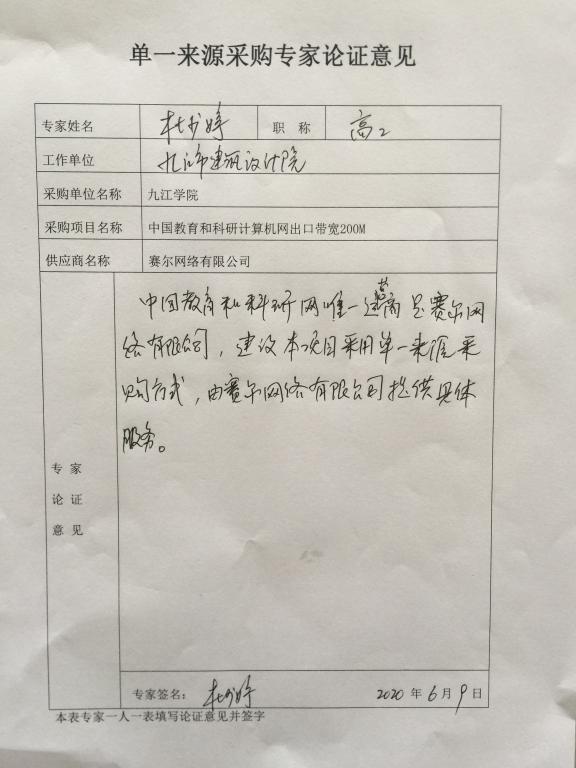 单一来源采购专家论证意见
专家姓名 杜书婷 职 称 高工
工作单位 九江市建筑设计院
采购单位名称 九江学院
采购项目名称 中国教育和科研计算机网出口带宽200M
供应商名称 赛尔网络有限公司
中国教育和科研网唯一运营商是赛尔网
络有限公司，建议本项目采用单一来源采
购方式，由赛尔网络有限公司提供具体
服务。
专 家
论 证
意 见
专家签名： 杜书婷 2020 年 6 月 9 日
本表专家一人一表填写论证意见并签字